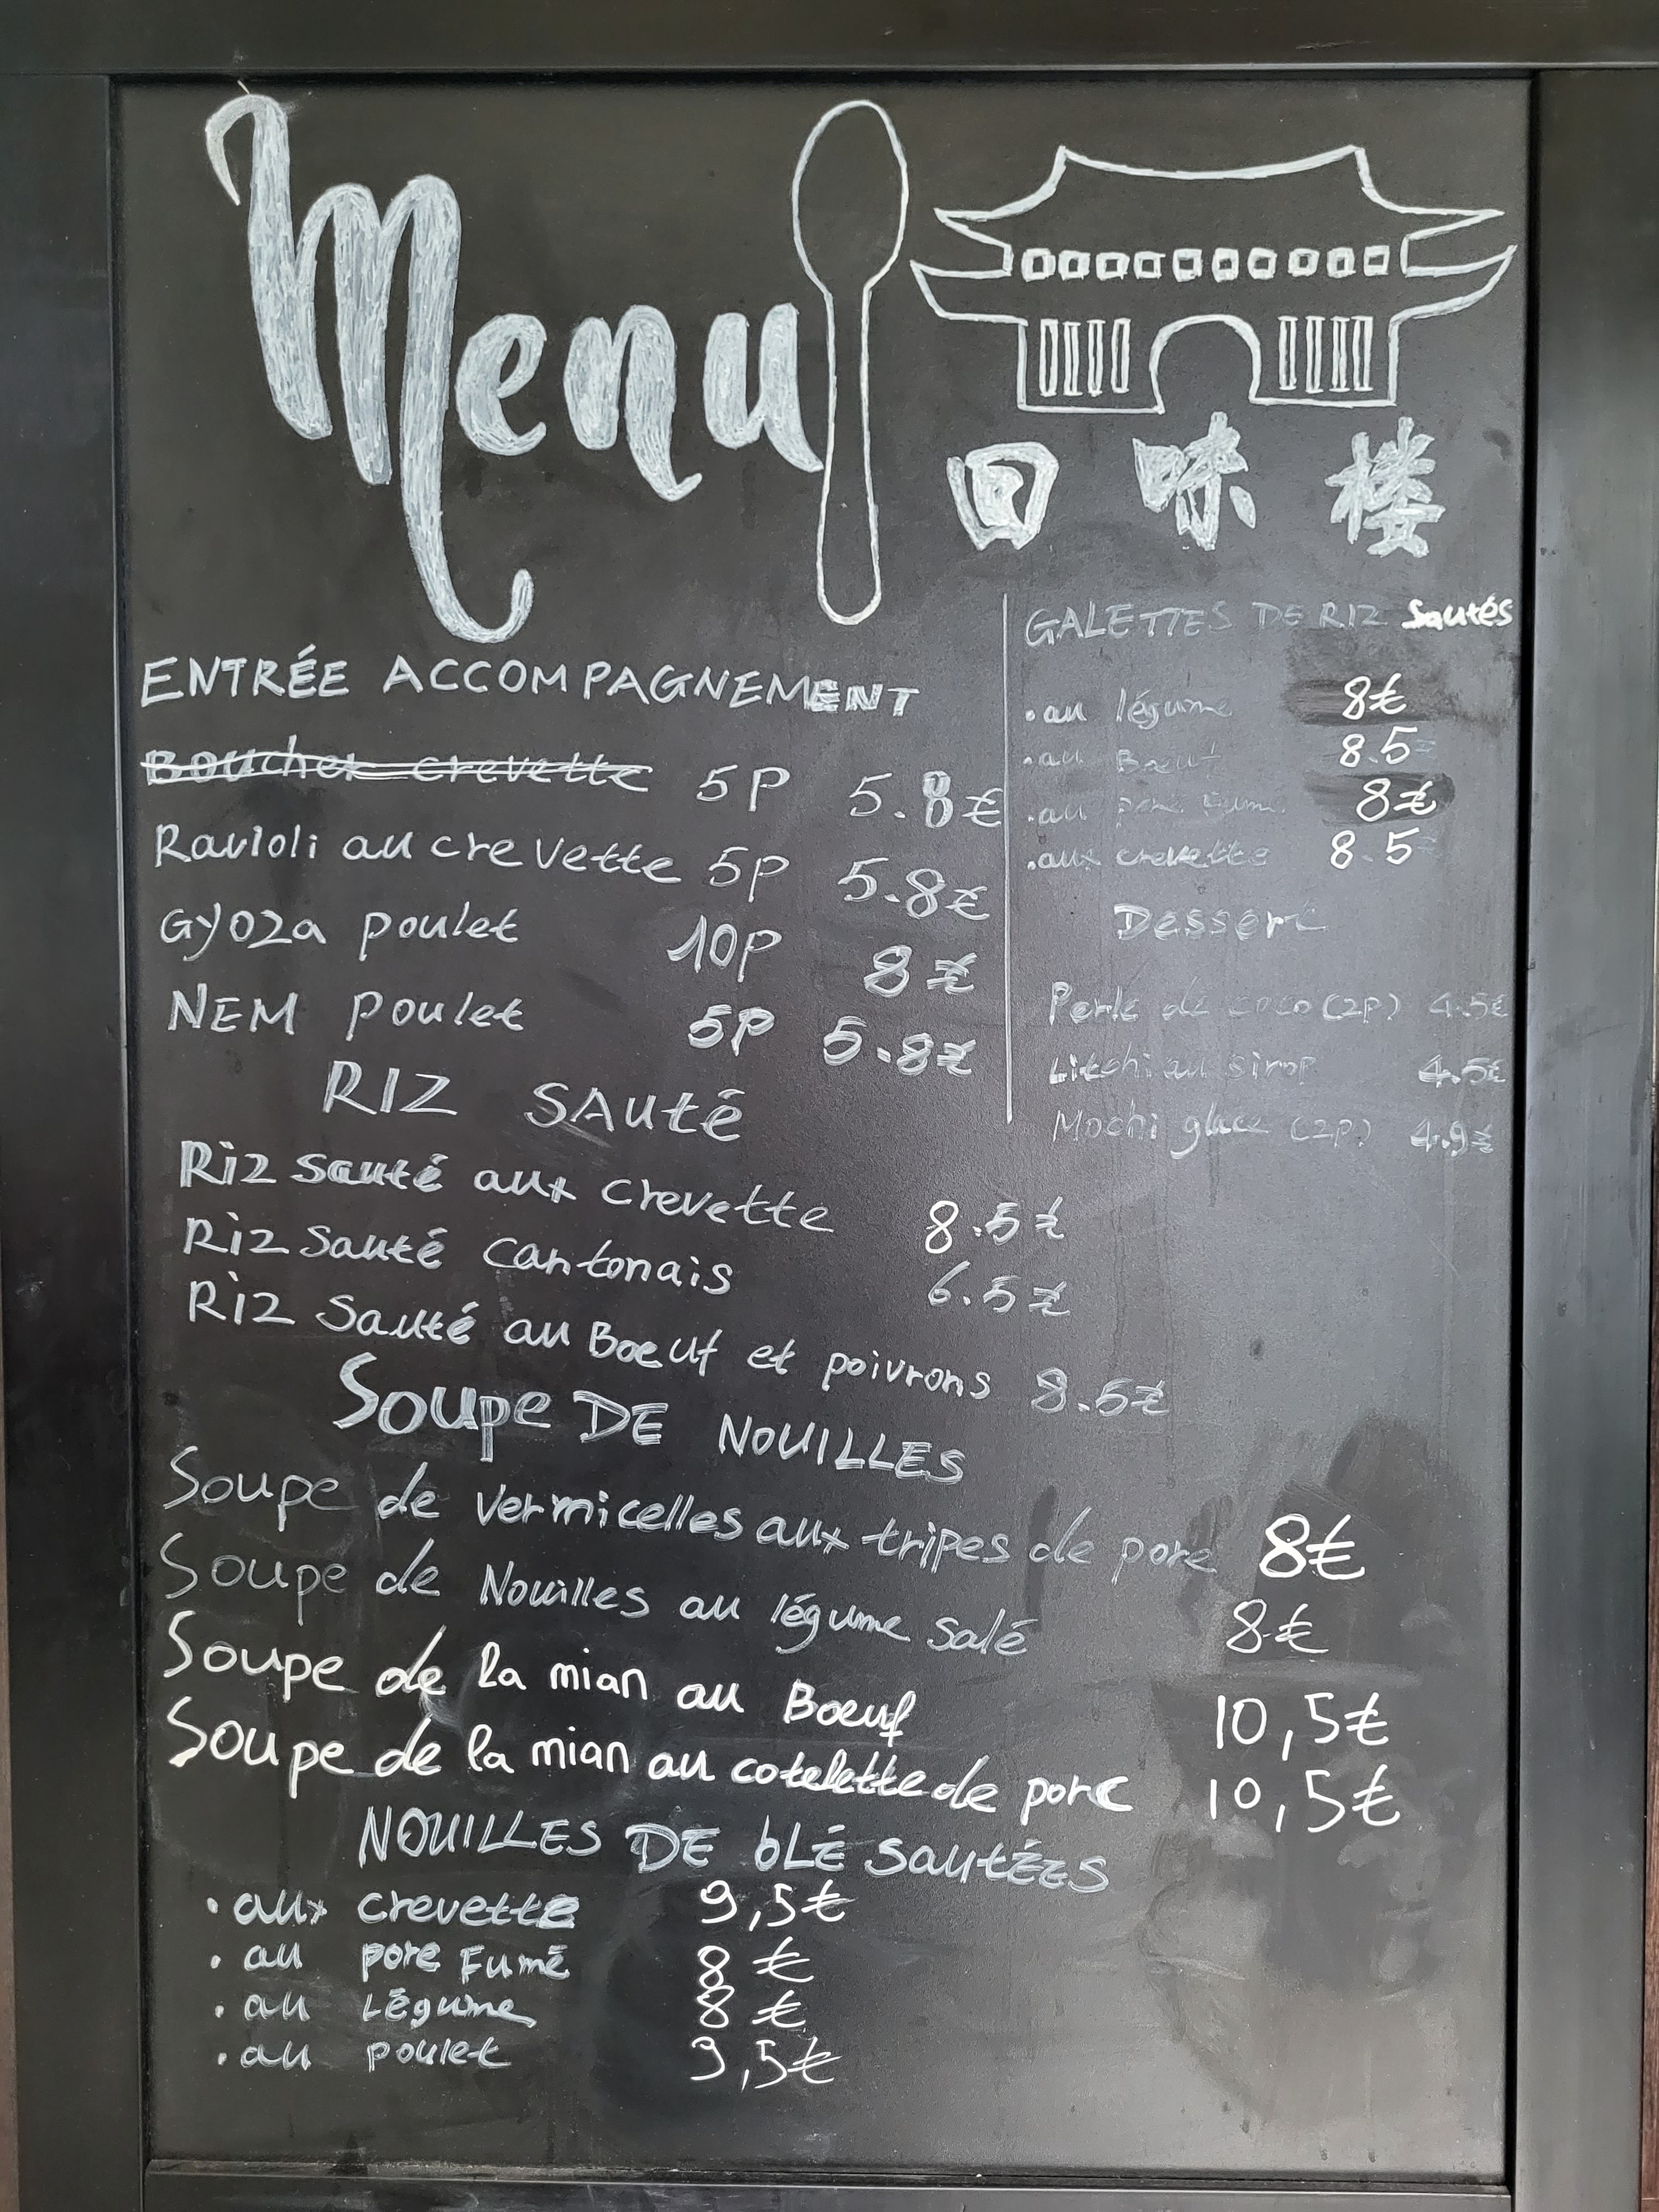 Menu
回味楼
ENTRÉE ACCOMPAGNEMENT
Bouchée crevette 5P 5.8€
Ravioli au crevette 5P 5.8€
Gyoza poulet 10P 8€
NEM poulet 5P 5.8€
RIZ SAUté
Riz sauté aux crevette 8.5€
Riz sauté cantonais 6.5€
Riz sauté au Boeuf et poivrons 8.5€
Soupe DE NOUILLES
Soupe de vermicelles aux tripes de porc 8€
Soupe de Nouilles au légume salé 8€
Soupe de la mian au Boeuf 10,5€
Soupe de la mian au cotelette de porc 10,5€
NOUILLES DE bLÉ SautÉES
. aux crevette 9,5€
. au porc Fumé 8€
. au Légume 8€
. au poulet 9,5€
GALETTES DE RIZ Sautés
. au légume 8€
. au Boeuf 8.5
. au porc fumé 8€
. aux crevette 8.5
Dessert
Perle de coco (2P) 4.5€
Litchi au sirop 4.5€
Mochi glace (2P) 4.9€